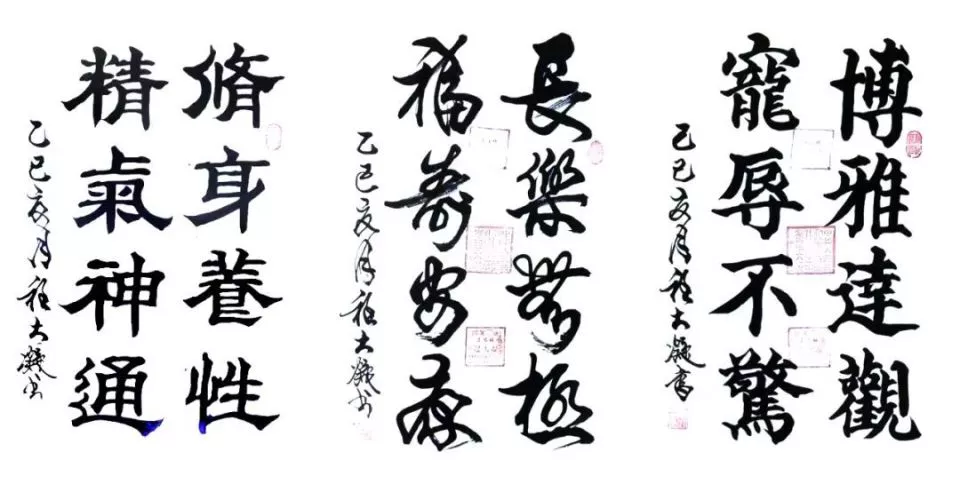 博雅達觀
寵辱不驚
乙巳亥月程大凝書
長樂無極
福壽安康
乙巳亥月程大凝書
脩身養性
精氣神通
乙巳亥月程大凝書